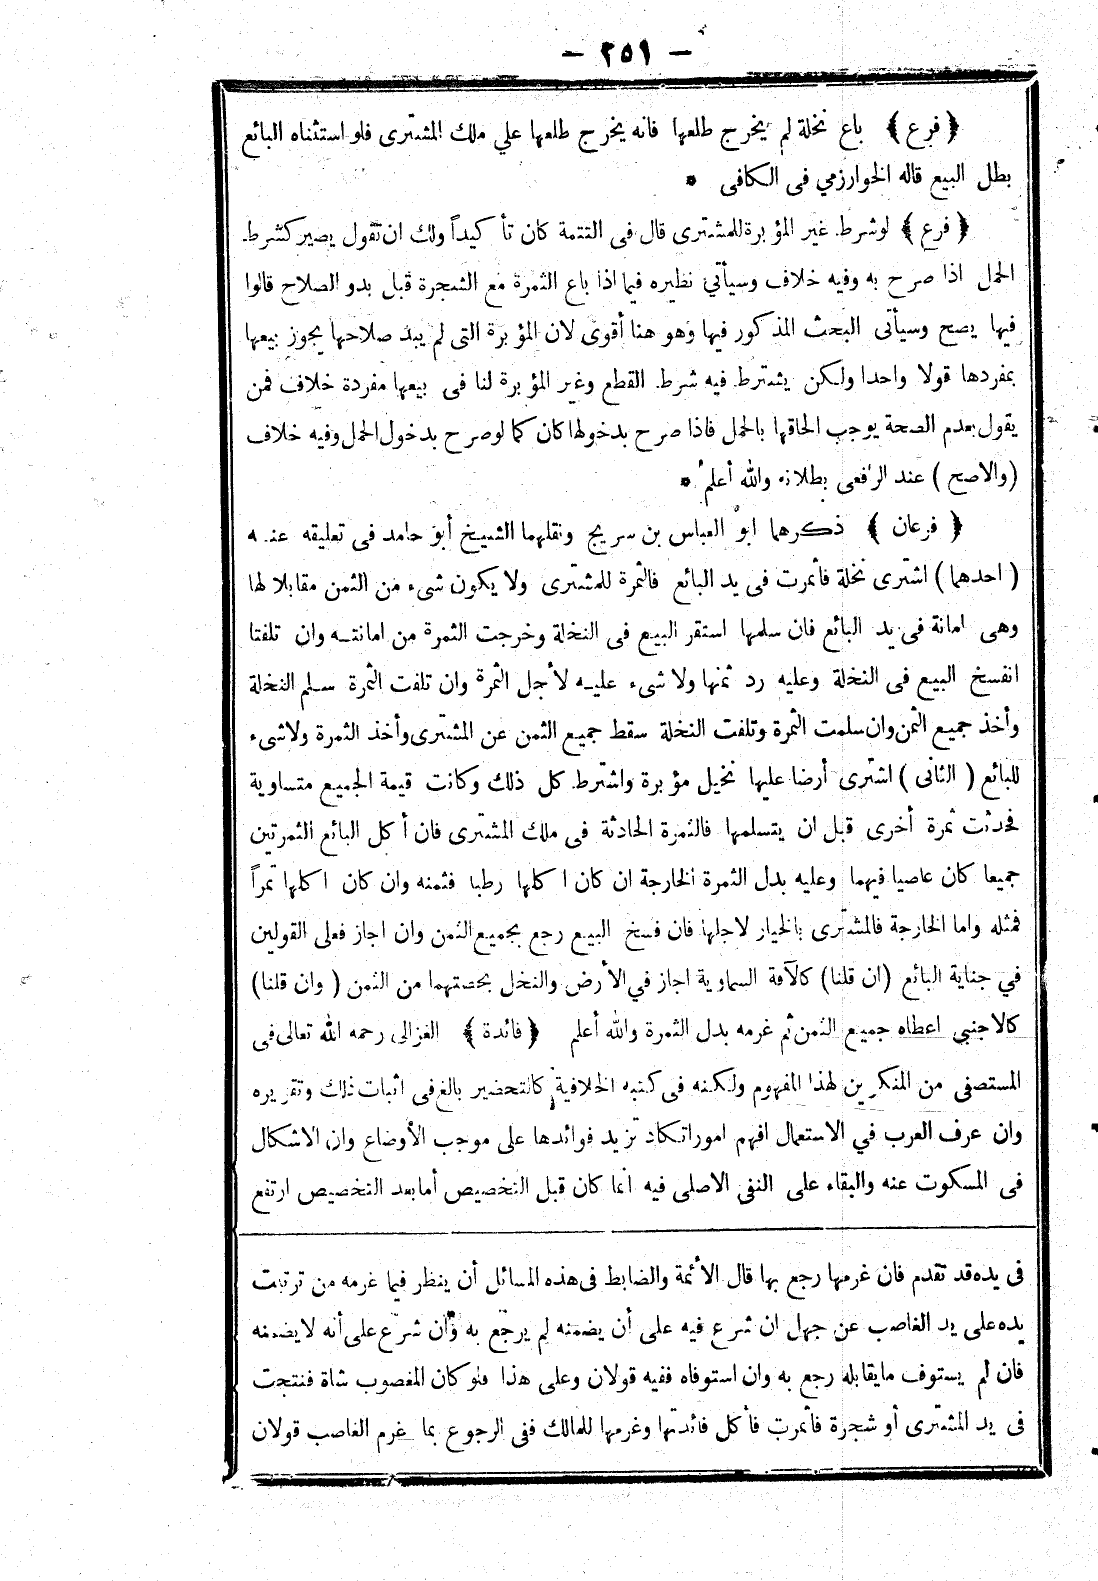 — ٣٥١ —
﴿ فرع ﴾ باع نخلة لم يخرج طلعها فانه يخرج طلعها علي ملك المشترى فلو استثناه البائع
بطل البيع قاله الخوارزمي فى الكافى *
﴿ فرع ﴾ لوشرط غير المؤبرة للمشترى قال فى التتمة كان تأكيداً ولك ان تقول يصير كشرط
الحمل اذا صرح به وفيه خلاف وسيأتي نظيره فيما اذا باع الثمرة مع الشجرة قبل بدو الصلاح قالوا
فيها يصح وسيأتى البحث المذكور فيها وهو هنا أقوى لان المؤبرة التى لم يبد صلاحها يجوز بيعها
بمفردها قولا واحدا ولكن يشترط فيه شرط القطع وغير المؤبرة لنا فى بيعها مفردة خلاف فمن
يقول بعدم الصحة يوجب الحاقها بالحمل فاذا صرح بدخولها كان كما لوصرح بدخول الحمل وفيه خلاف
(والاصح ) عند الرافعى بطلانه والله أعلم *
﴿ فرعان ﴾ ذكرهما ابو العباس بن سريج ونقلهما الشيخ أبو حامد فى تعليقه عنه
( احدهما ) اشترى نخلة فأثمرت فى يد البائع فالثمرة للمشترى ولا يكون شىء من الثمن مقابلا لها
وهى امانة فى يد البائع فان سلمها استقر البيع فى النخلة وخرجت الثمرة من امانته وان تلفتا
انفسخ البيع فى النخلة وعليه رد ثمنها ولا شىء عليه لأجل الثمرة وان تلفت الثمرة سلم النخلة
وأخذ جميع الثمن وان سلمت الثمرة وتلفت النخلة سقط جميع الثمن عن المشترى وأخذ الثمرة ولا شىء
للبائع ( الثانى ) اشترى أرضا عليها نخيل مؤبرة واشترط كل ذلك وكانت قيمة الجميع متساوية
فحدثت ثمرة أخرى قبل ان يتسلمها فالثمرة الحادثة فى ملك المشترى فان أكل البائع الثمرتين
جميعا كان عاصيا فيهما وعليه بدل الثمرة الخارجة ان كان اكلها رطبا فثمنه وان كان اكلها تمراً
فمثله واما الخارجة فالمشترى بالخيار لاجلها فان فسخ البيع رجع بجميع الثمن وان اجاز فعلى القولين
في جناية البائع (ان قلنا) كالآفة السماوية اجاز في الأرض والنخل بحصتهما من الثمن ( وان قلنا)
كالاجنبي اعطاه جميع الثمن ثم غرمه بدل الثمرة والله أعلم ﴿ فائدة ﴾ الغزالى رحمه الله تعالى فى
المستصفى من المنكرين لهذا المفهوم ولكنه فى كتبه الخلافية كالتحضير بالغ فى اثبات ذلك وتقريره
وان عرف العرب في الاستعمال افهم امورا تكاد تزيد فوائدها على موجب الأوضاع وان الاشكال
فى المسكوت عنه والبقاء على النفى الاصلى فيه انما كان قبل التخصيص أما بعد التخصيص ارتفع
فى يده قد تقدم فان غرمها رجع بها قال الأئمة والضابط فى هذه المسائل أن ينظر فيما غرمه من ترتبت
يده على يد الغاصب عن جهل ان شرع فيه على أن يضمنه لم يرجع به وان شرع على أنه لا يضمنه
فان لم يستوف مايقابله رجع به وان استوفاه ففيه قولان وعلى هذا فلو كان المغصوب شاة فنتجت
فى يد المشترى أو شجرة فأثمرت فأكل فائدتها وغرمها للمالك ففى الرجوع بما غرم الغاصب قولان